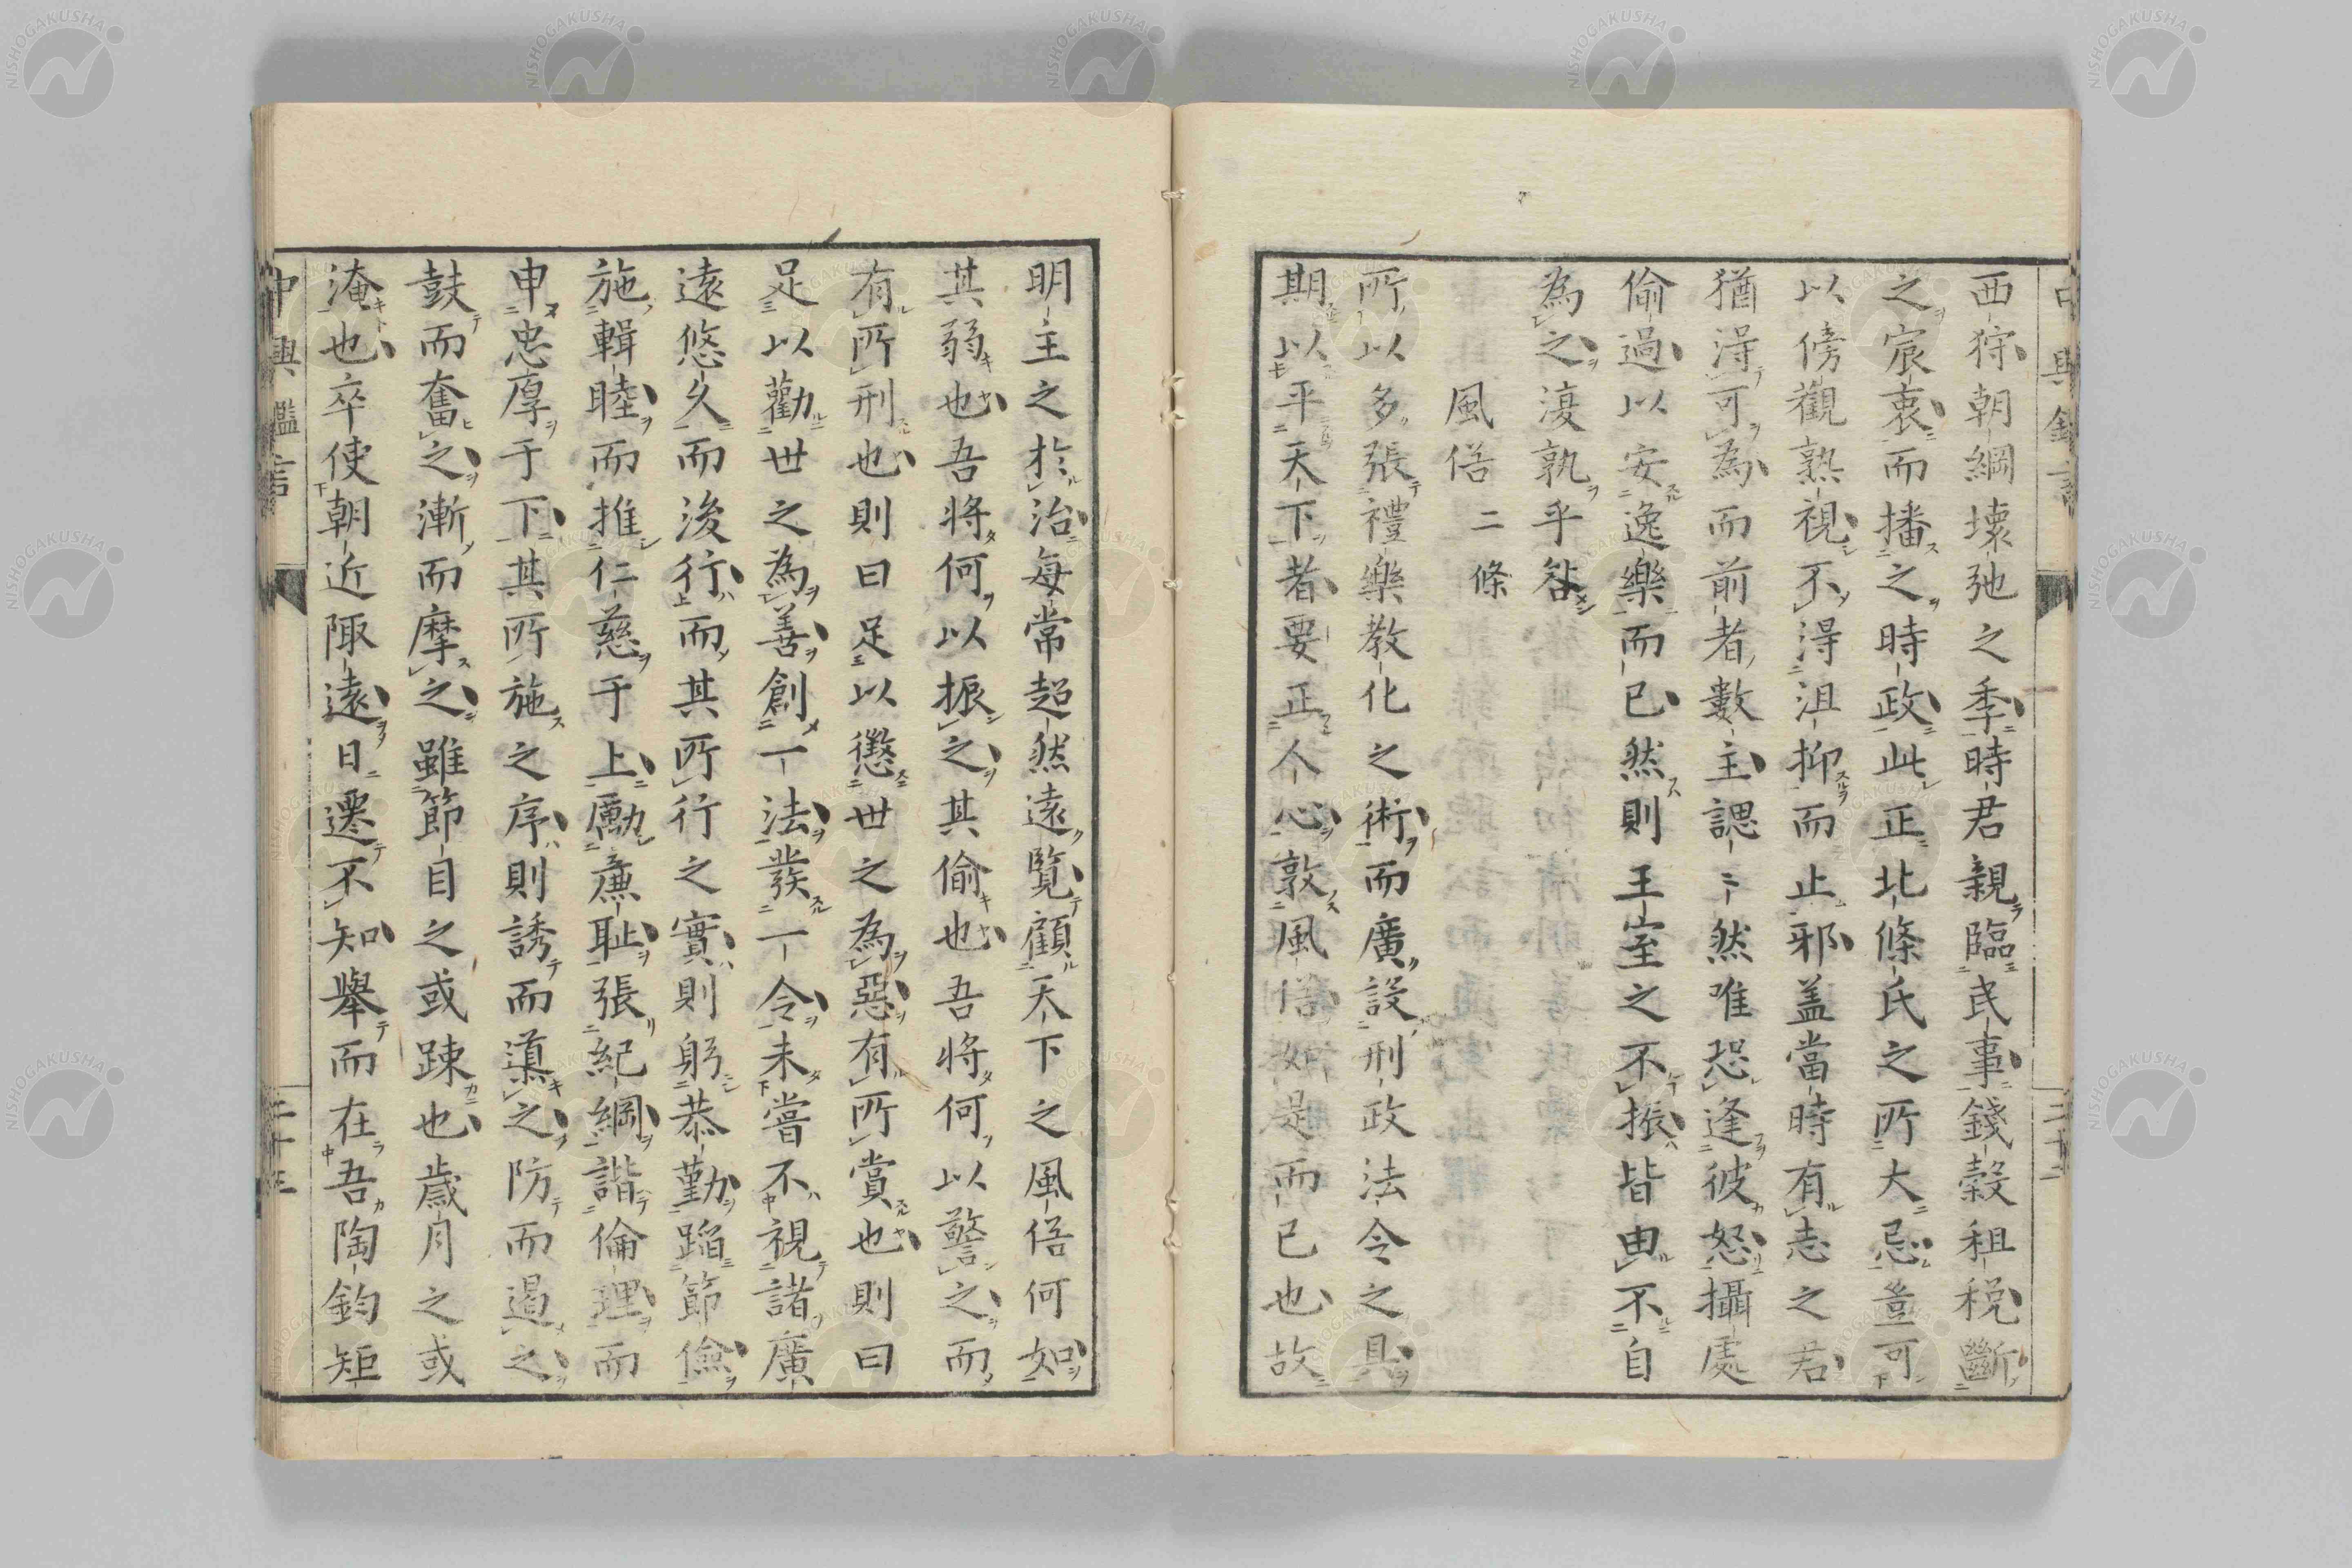 西狩朝綱壞弛之季時君親臨民事錢穀租税斷
之宸衷而播之時政此正北條氏之所大忌豈可
以傍觀熟視不得沮抑而止邪蓋當時有志之君
猶得可為而前者數主諰〻然唯恐逢彼怒攝處
偷過以安逸樂而已然則王室之不振皆由不自
為之復孰乎咎
風俗二條
所以多張禮樂教化之術而廣設刑政法令之具
期以平天下者要正人心敦風俗如是而已也故
明主之於治每常超然遠覽顧天下之風俗何如
其弱也吾將何以振之其偷也吾將何以警之而
有所刑也則曰足以懲世之為惡有所賞也則曰
足以勸世之為善創一法發一令未嘗不視諸廣
遠悠久而後行而其所行之實則躬恭勤蹈節儉
施輯睦而推仁慈于上勵廉恥張紀綱諧倫理而
申忠厚于下其所施之序則誘而導之防而遏之
鼓而奮之漸而摩之雖節目之或踈也歲月之或
淹也卒使朝近陬遠日遷不知舉而在吾陶鈞矩
中興鑑言
二十三
NISHOGAKUSHA